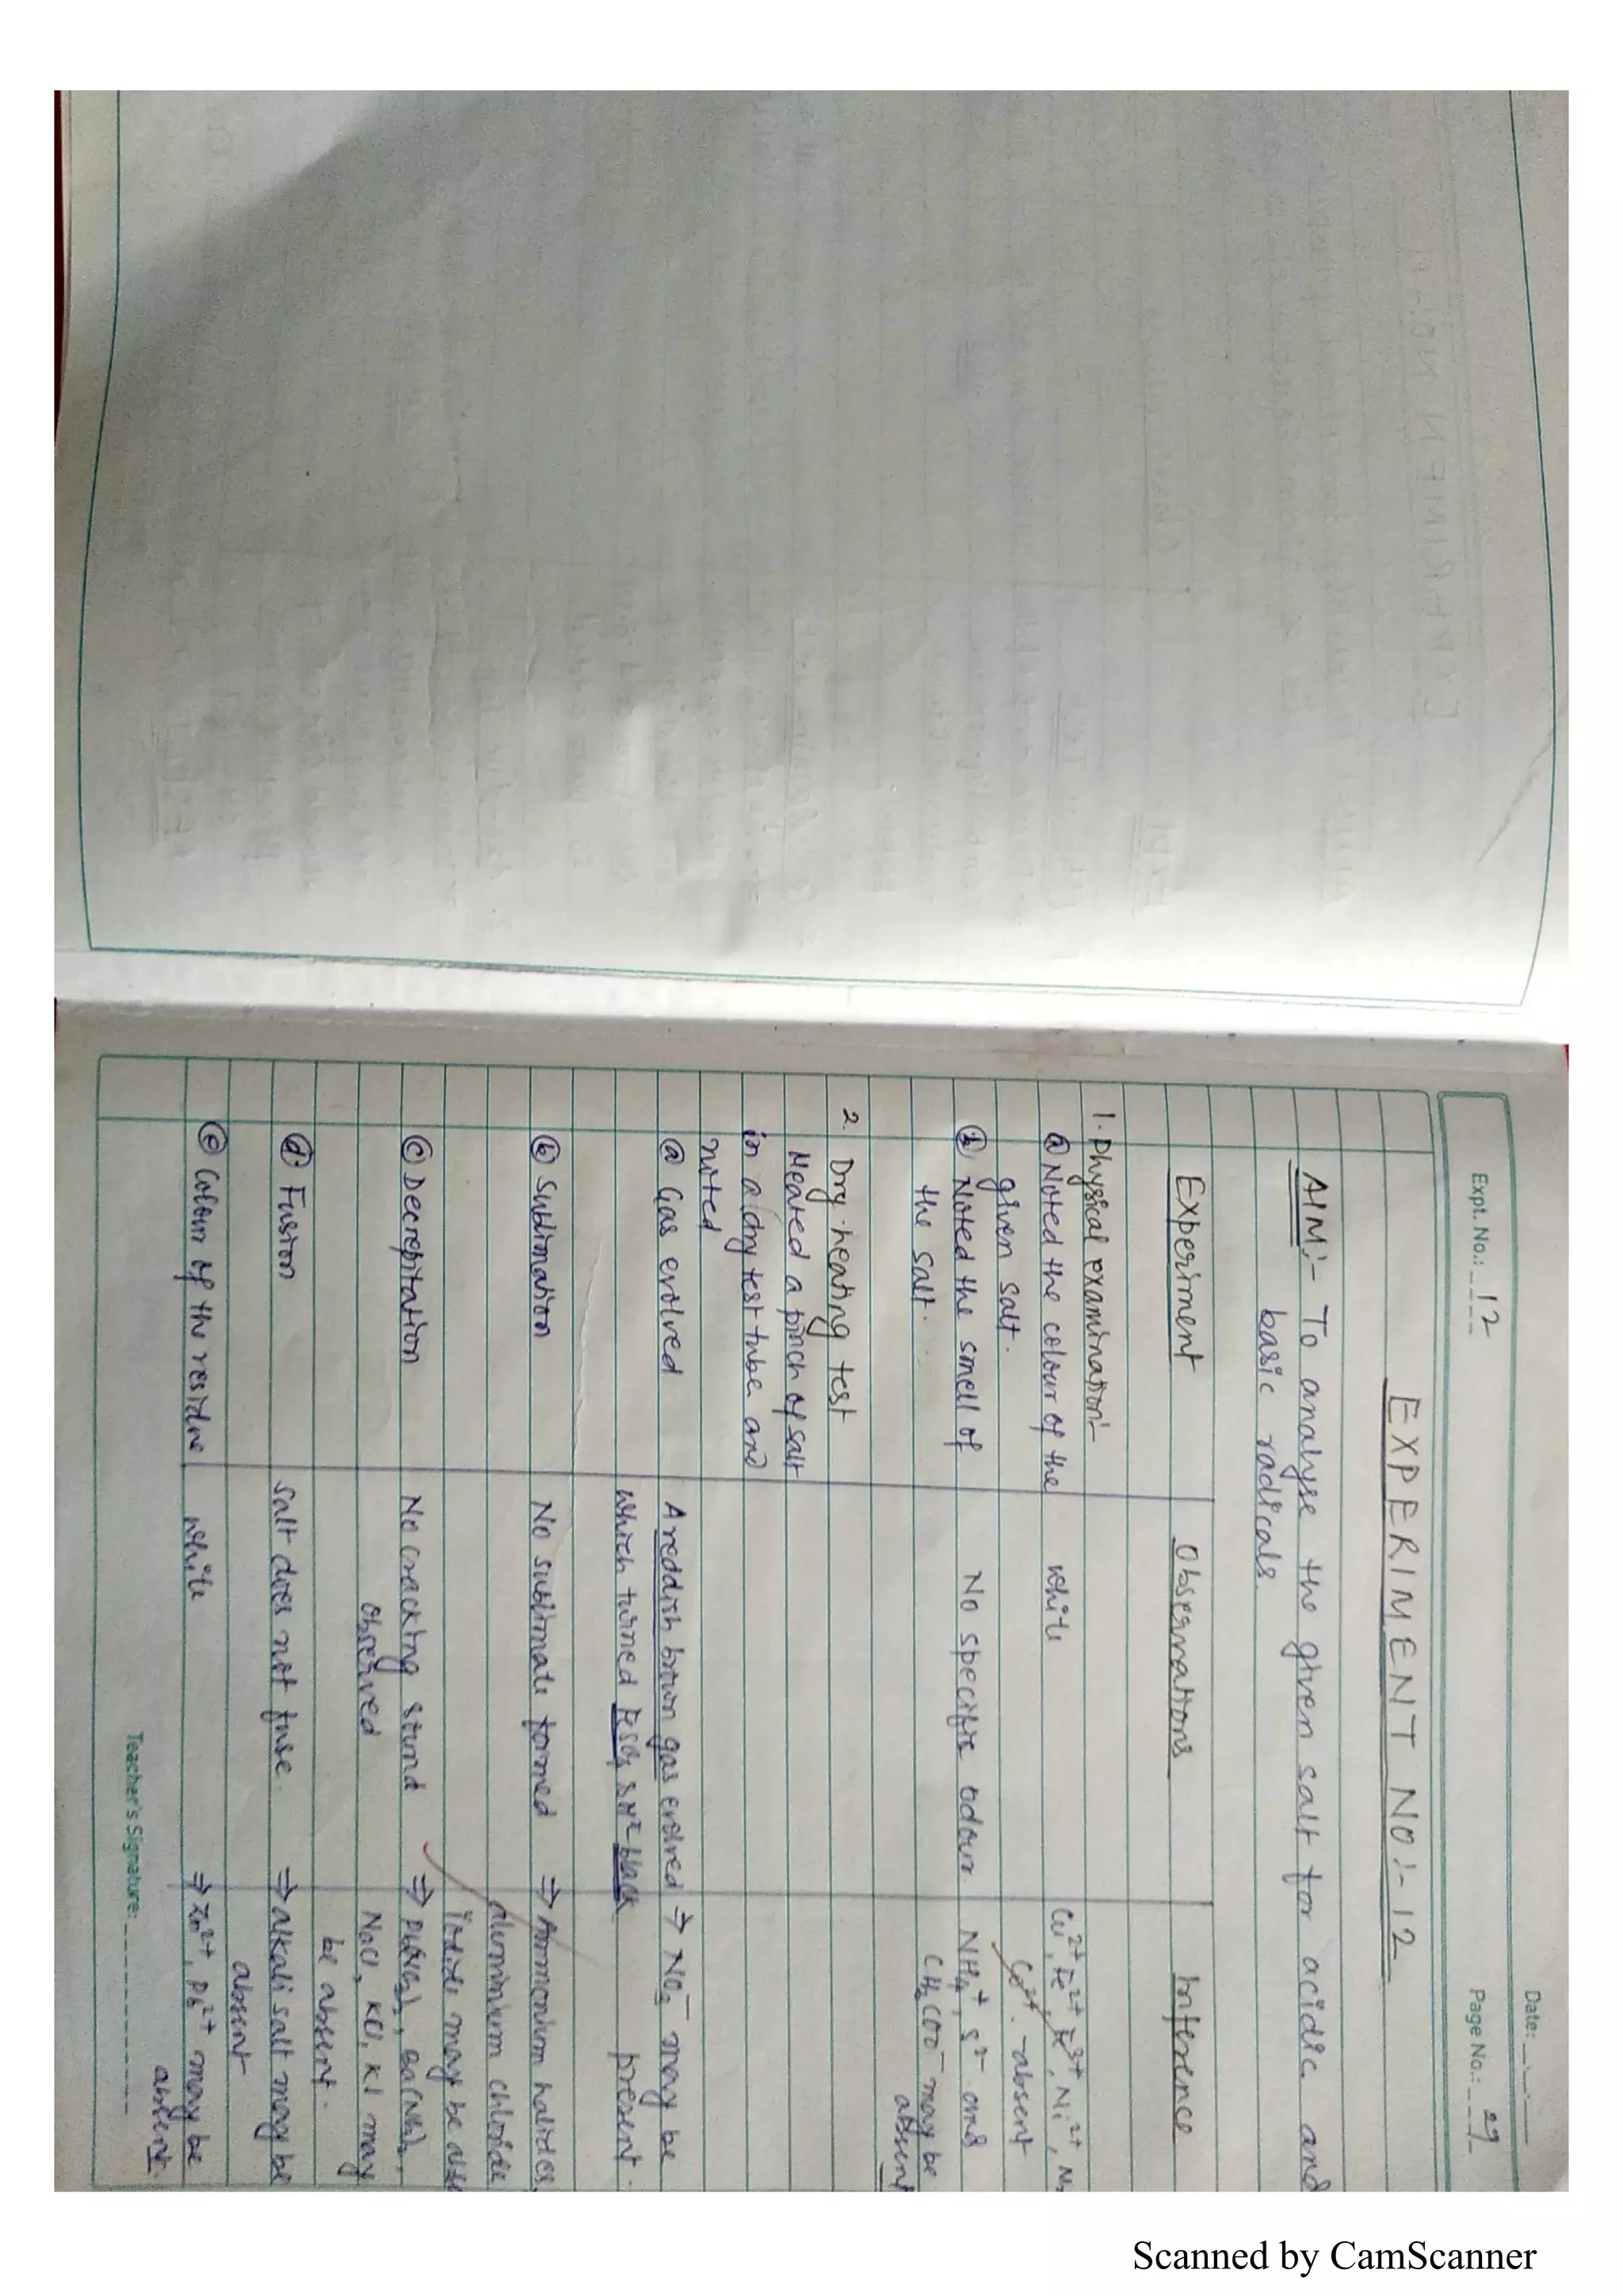 Date: __.__.__
Expt. No.: 12
Page No.: 29
EXPERIMENT NO:- 12
AIM:- To analyse the given salt for acidic and
basic radicals.
Experiment Observations Inference
1. Physical examination:-
(a) Noted the colour of the white Cu²⁺, Fe²⁺, Fe³⁺, Ni²⁺,
given salt. Co²⁺ - absent
(b) Noted the smell of No specific odour NH₄⁺, S²⁻ and
the salt. CH₃COO⁻ may be
absent
2. Dry heating test
Heated a pinch of salt
in a dry test tube and
noted
(a) Gas evolved A reddish brown gas evolved ⇒ NO₃⁻ may be
which turned FeSO₄ black present.
(b) Sublimation No sublimate formed ⇒ Ammonium halides,
aluminium chloride
Iodide may be
(c) Decrepitation No cracking sound ⇒ Pb(NO₃)₂, Ba(NO₃)₂,
observed NaCl, KCl, KI may
be absent.
(d) Fusion Salt does not fuse. ⇒ alkali salt may be
absent
(e) Colour of the residue white ⇒ Zn²⁺, Pb²⁺ may be
absent.
Teacher's Signature:
Scanned by CamScanner